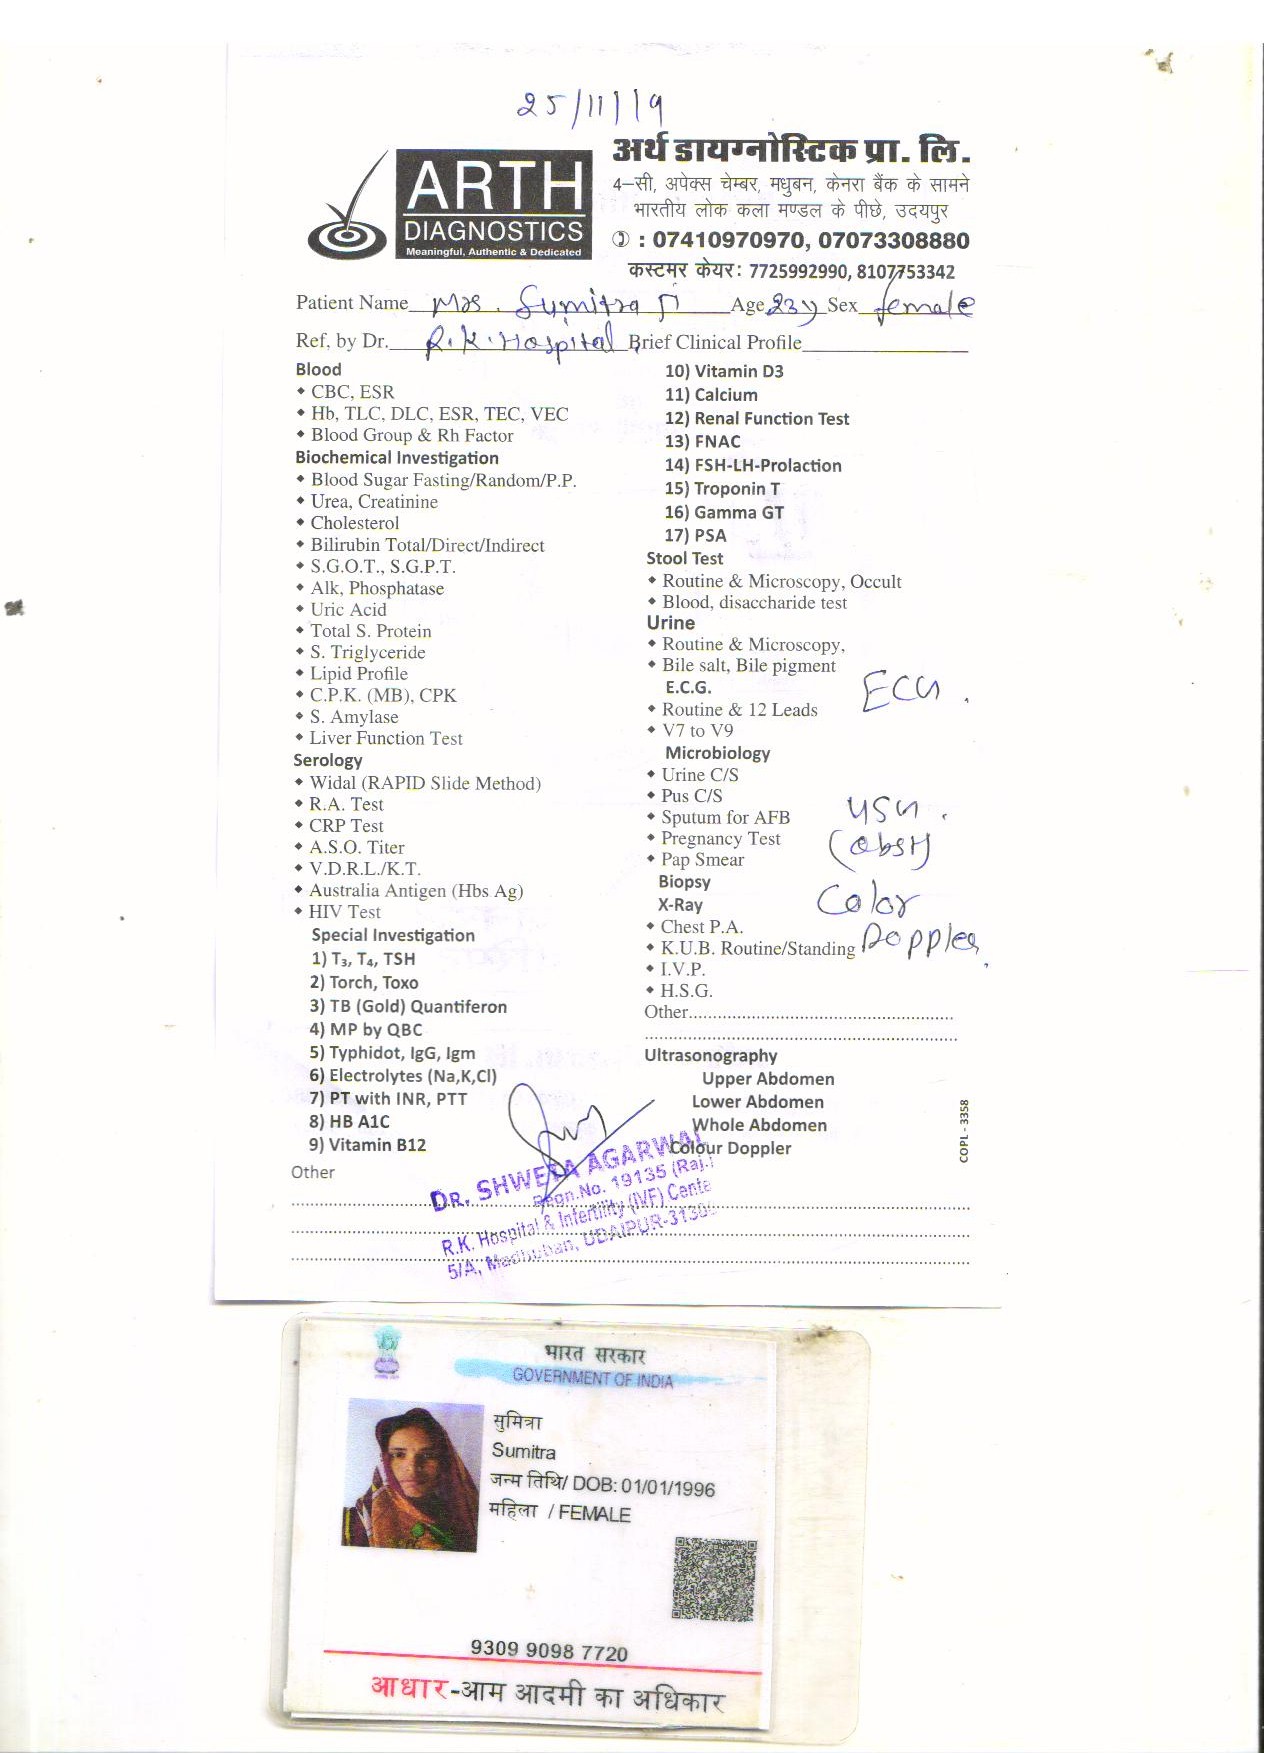 25/11/19
ARTH
DIAGNOSTICS
Meaningful, Authentic & Dedicated
अर्थ डायग्नोस्टिक प्रा. लि.
4–सी, अपेक्स चेम्बर, मधुबन, केनरा बैंक के सामने
भारतीय लोक कला मण्डल के पीछे, उदयपुर
: 07410970970, 07073308880
कस्टमर केयर: 7725992990, 8107753342
Patient Name Mrs. Sumitra Age 23y Sex female
Ref. by Dr. R.K. Hospital Brief Clinical Profile
Blood
CBC, ESR
Hb, TLC, DLC, ESR, TEC, VEC
Blood Group & Rh Factor
Biochemical Investigation
Blood Sugar Fasting/Random/P.P.
Urea, Creatinine
Cholesterol
Bilirubin Total/Direct/Indirect
S.G.O.T., S.G.P.T.
Alk, Phosphatase
Uric Acid
Total S. Protein
S. Triglyceride
Lipid Profile
C.P.K. (MB), CPK
S. Amylase
Liver Function Test
Serology
Widal (RAPID Slide Method)
R.A. Test
CRP Test
A.S.O. Titer
V.D.R.L./K.T.
Australia Antigen (Hbs Ag)
HIV Test
Special Investigation
1) T3, T4, TSH
2) Torch, Toxo
3) TB (Gold) Quantiferon
4) MP by QBC
5) Typhidot, IgG, Igm
6) Electrolytes (Na,K,Cl)
7) PT with INR, PTT
8) HB A1C
9) Vitamin B12
Other
10) Vitamin D3
11) Calcium
12) Renal Function Test
13) FNAC
14) FSH-LH-Prolaction
15) Troponin T
16) Gamma GT
17) PSA
Stool Test
Routine & Microscopy, Occult
Blood, disaccharide test
Urine
Routine & Microscopy,
Bile salt, Bile pigment
E.C.G.
Routine & 12 Leads
V7 to V9
Microbiology
Urine C/S
Pus C/S
Sputum for AFB
Pregnancy Test
Pap Smear
Biopsy
X-Ray
Chest P.A.
K.U.B. Routine/Standing
I.V.P.
H.S.G.
Other
Ultrasonography
Upper Abdomen
Lower Abdomen
Whole Abdomen
Colour Doppler
ECG.
USG.
(obst)
Color
Doppler
COPL - 3358
DR. SHWETA AGARWAL
Regn.No. 19135 (Raj.)
R.K. Hospital & Infertility (IVF) Cente
5/A, Madhuban, UDAIPUR-3130
भारत सरकार
GOVERNMENT OF INDIA
सुमित्रा
Sumitra
जन्म तिथि/ DOB: 01/01/1996
महिला / FEMALE
9309 9098 7720
आधार-आम आदमी का अधिकार